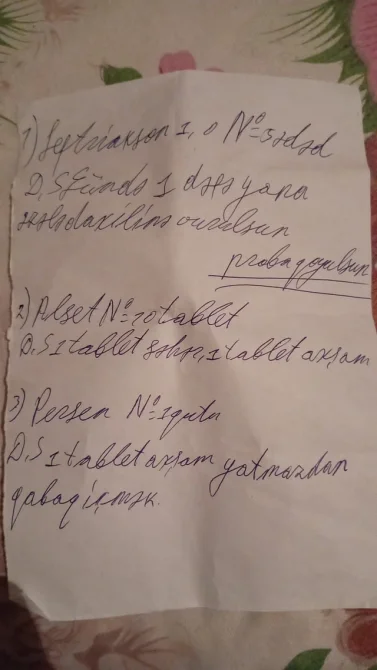 1) Seftriakson 1,0 № 5 ədəd
D,S Gündə 1 dəfə yana
əzələdaxilinə vurulsun
proba qoyulsun
2) Alset № 10 tablet
D,S 1 tablet səhər, 1 tablet axşam
3) Persen № 1 qutu
D,S 1 tablet axşam yatmazdan
qabaq içmək.